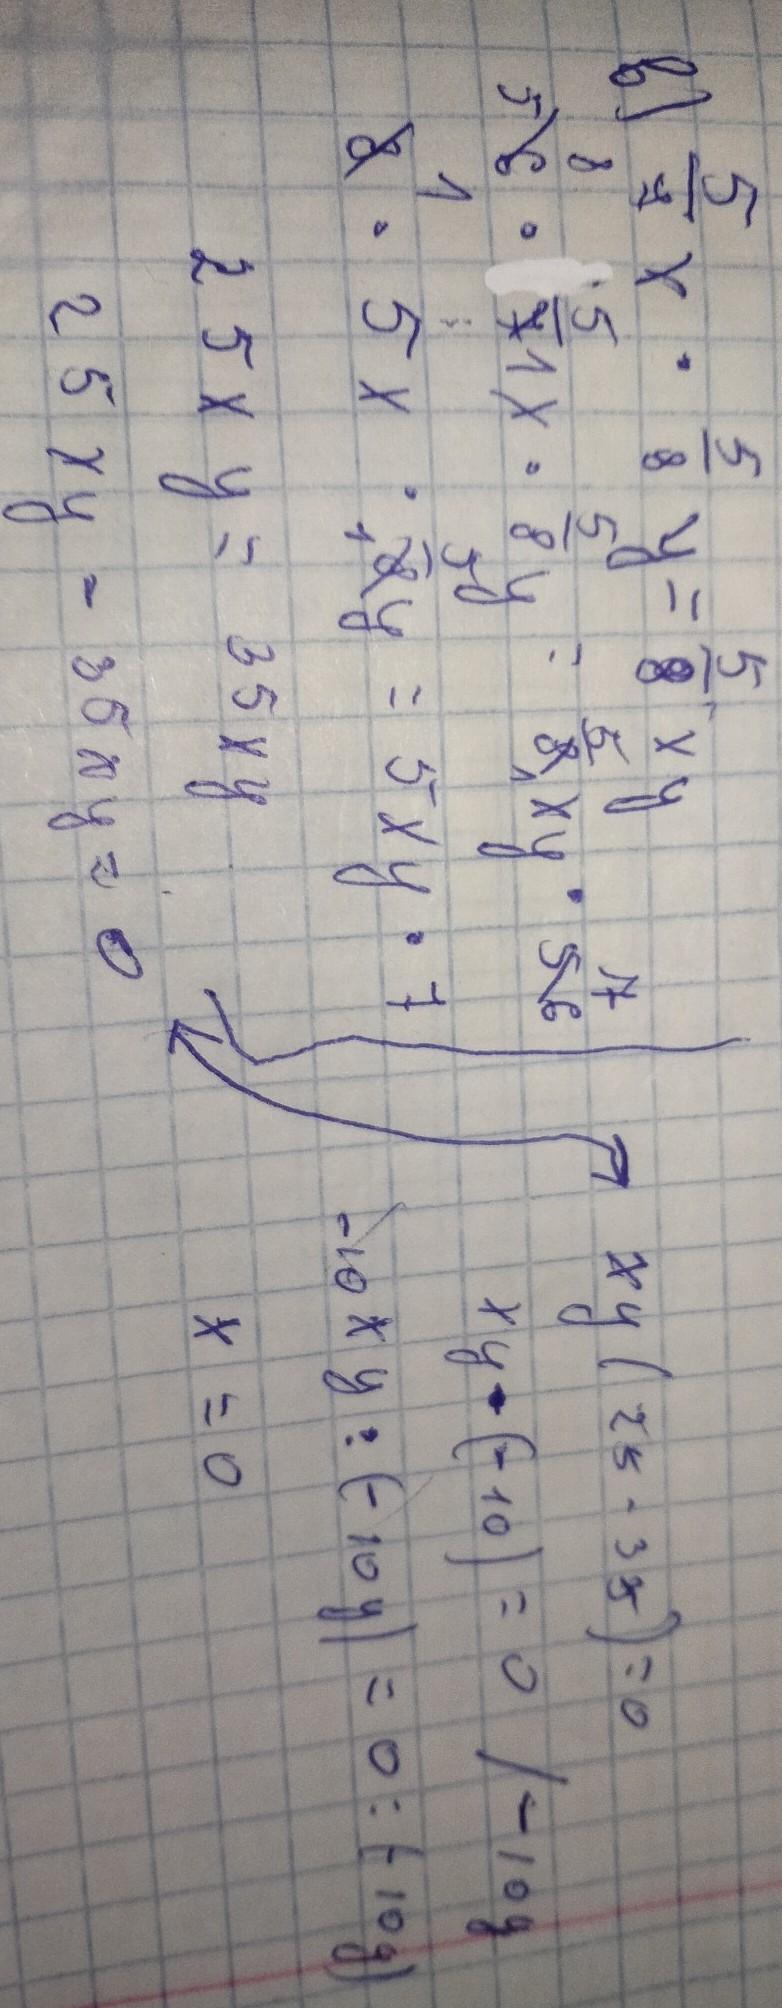 б) 5/7 x · 5/8 y = 5/8 xy
56 · 5/7 x · 5/8 y = 5/8 xy · 56
8 · 5x · 5y/8 = 5xy · 7
25xy = 35xy
25xy - 35xy = 0
xy(25-35)=0
xy·(-10)=0 /-10y
-10xy:(-10y)=0:(-10y)
x=0